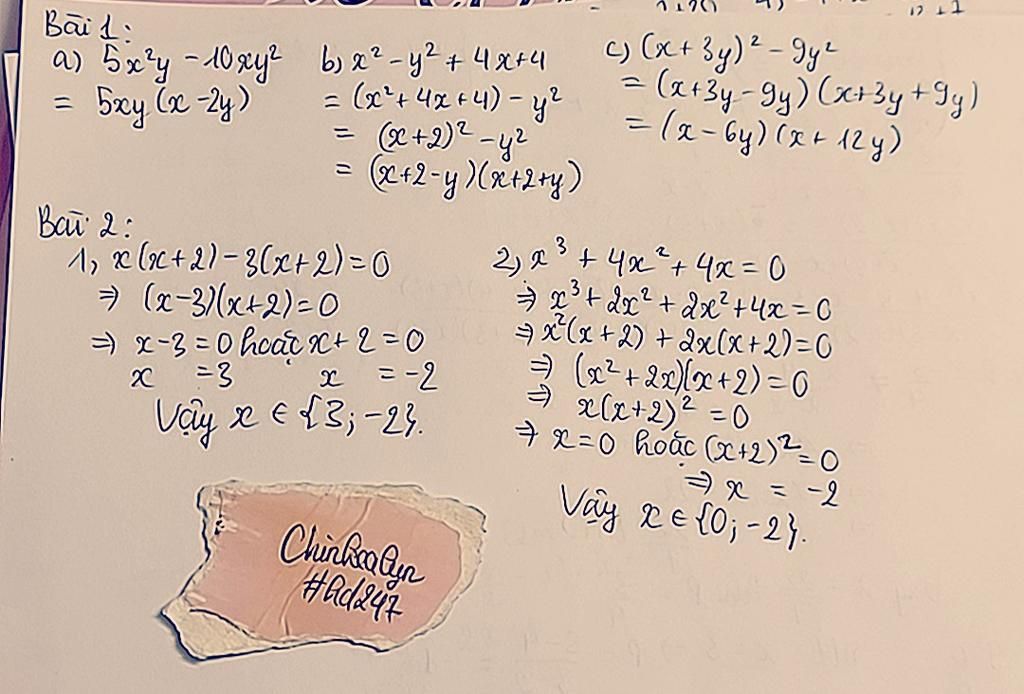 Bài 1:
a) 5x²y - 10xy²
= 5xy(x - 2y)
b) x² - y² + 4x + 4
= (x² + 4x + 4) - y²
= (x+2)² - y²
= (x+2-y)(x+2+y)
c) (x + 3y)² - 9y²
= (x+3y-9y)(x+3y+9y)
= (x - 6y)(x + 12y)
Bài 2:
1, x(x+2) - 3(x+2) = 0
⇒ (x-3)(x+2) = 0
⇒ x-3 = 0 hoặc x + 2 = 0
x = 3 x = -2
Vậy x ∈ {3; -2}.
2, x³ + 4x² + 4x = 0
⇒ x³ + 2x² + 2x² + 4x = 0
⇒ x²(x+2) + 2x(x+2) = 0
⇒ (x² + 2x)(x+2) = 0
⇒ x(x+2)² = 0
⇒ x = 0 hoặc (x+2)² = 0
⇒ x = -2
Vậy x ∈ {0; -2}.
#hd247